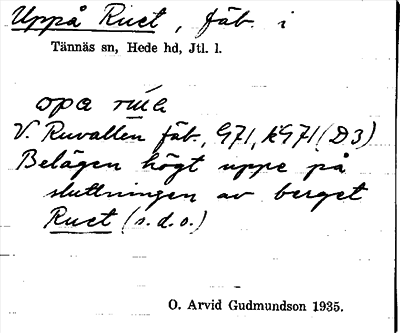 Uppå Ruet, fäb. i
Tännäs sn, Hede hd, Jtl. l.
opa
V. Ruvallen fäb., G71, kG71 (D3)
Belägen högt uppe på
sluttningen av berget
Ruet (s.d.o.)
O. Arvid Gudmundson 1935.